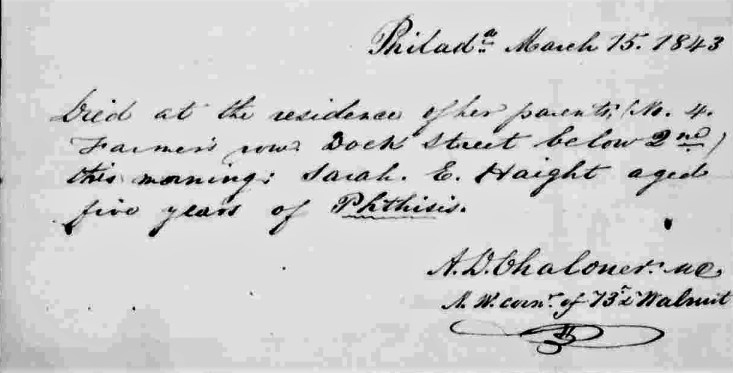 Philad.a March 15. 1843
Died at the residence of her parents, (No. 4.
Farmer's row Dock Street below 2nd)
this morning; Sarah. E. Haight aged
five years of Phthisis.
A. D. Chaloner. M.D.
N. W. corn.r of & Walnut